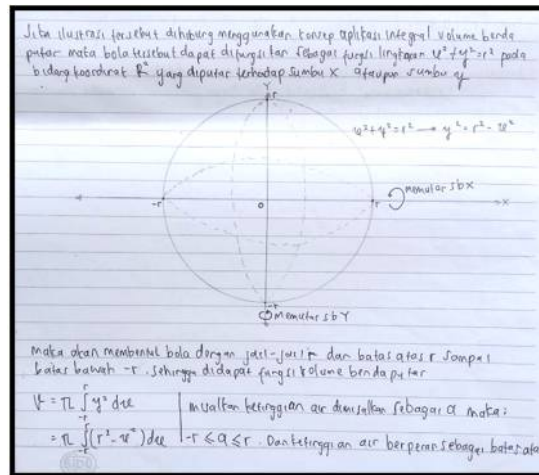 Jika ilustrasi tersebut dihitung menggunakan konsep aplikasi integral volume benda
putar maka bola tersebut dapat difungsikan sebagai fungsi lingkaran x²+y²=r² pada
bidang koordinat R² yang diputar terhadap sumbu X ataupun sumbu y
Y
r
x²+y²=r² → y²=r²-x²
memutar sbX
-r
O
r
X
-r
memutar sbY
maka akan membentuk bola dengan jari-jari r dan batas atas r sampai
batas bawah -r. sehingga didapat fungsi volume benda putar
V = π ∫ y² dx
r
-r
misalkan ketinggian air dimisalkan sebagai a maka:
= π ∫ (r²-x²) dx
r
-r
-r ≤ a ≤ r. Dan ketinggian air berperan sebagai batas ata